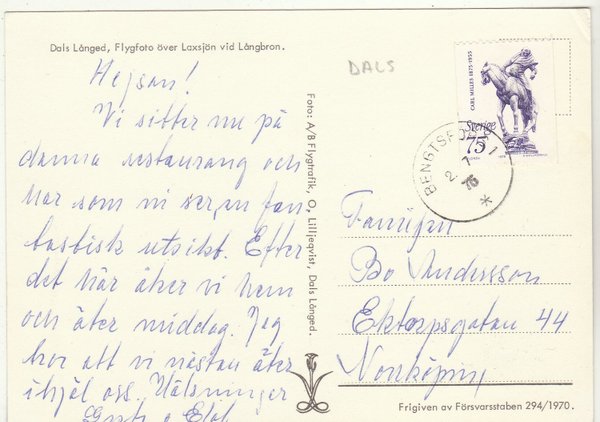 Dals Långed, Flygfoto över Laxsjön vid Långbron.
DALS
Hejsan!
Vi sitter nu på
danna restaurang och
har som vi ser, en fan-
tastisk utsikt. Efter
det här åker vi hem
och äter middag. Jag
tror att vi nästan äter
ihjäl oss. Hälsningar
Foto: A/B Flygtrafik, O, Lilljeqvist, Dals Långed.
CARL MILLES 1875-1955
Sverige
75
BENGTSFORS 1
2. 7
75
Familjen
Bo Andersson
Ektorpsgatan 44
Norrköping
Frigiven av Försvarsstaben 294/1970.